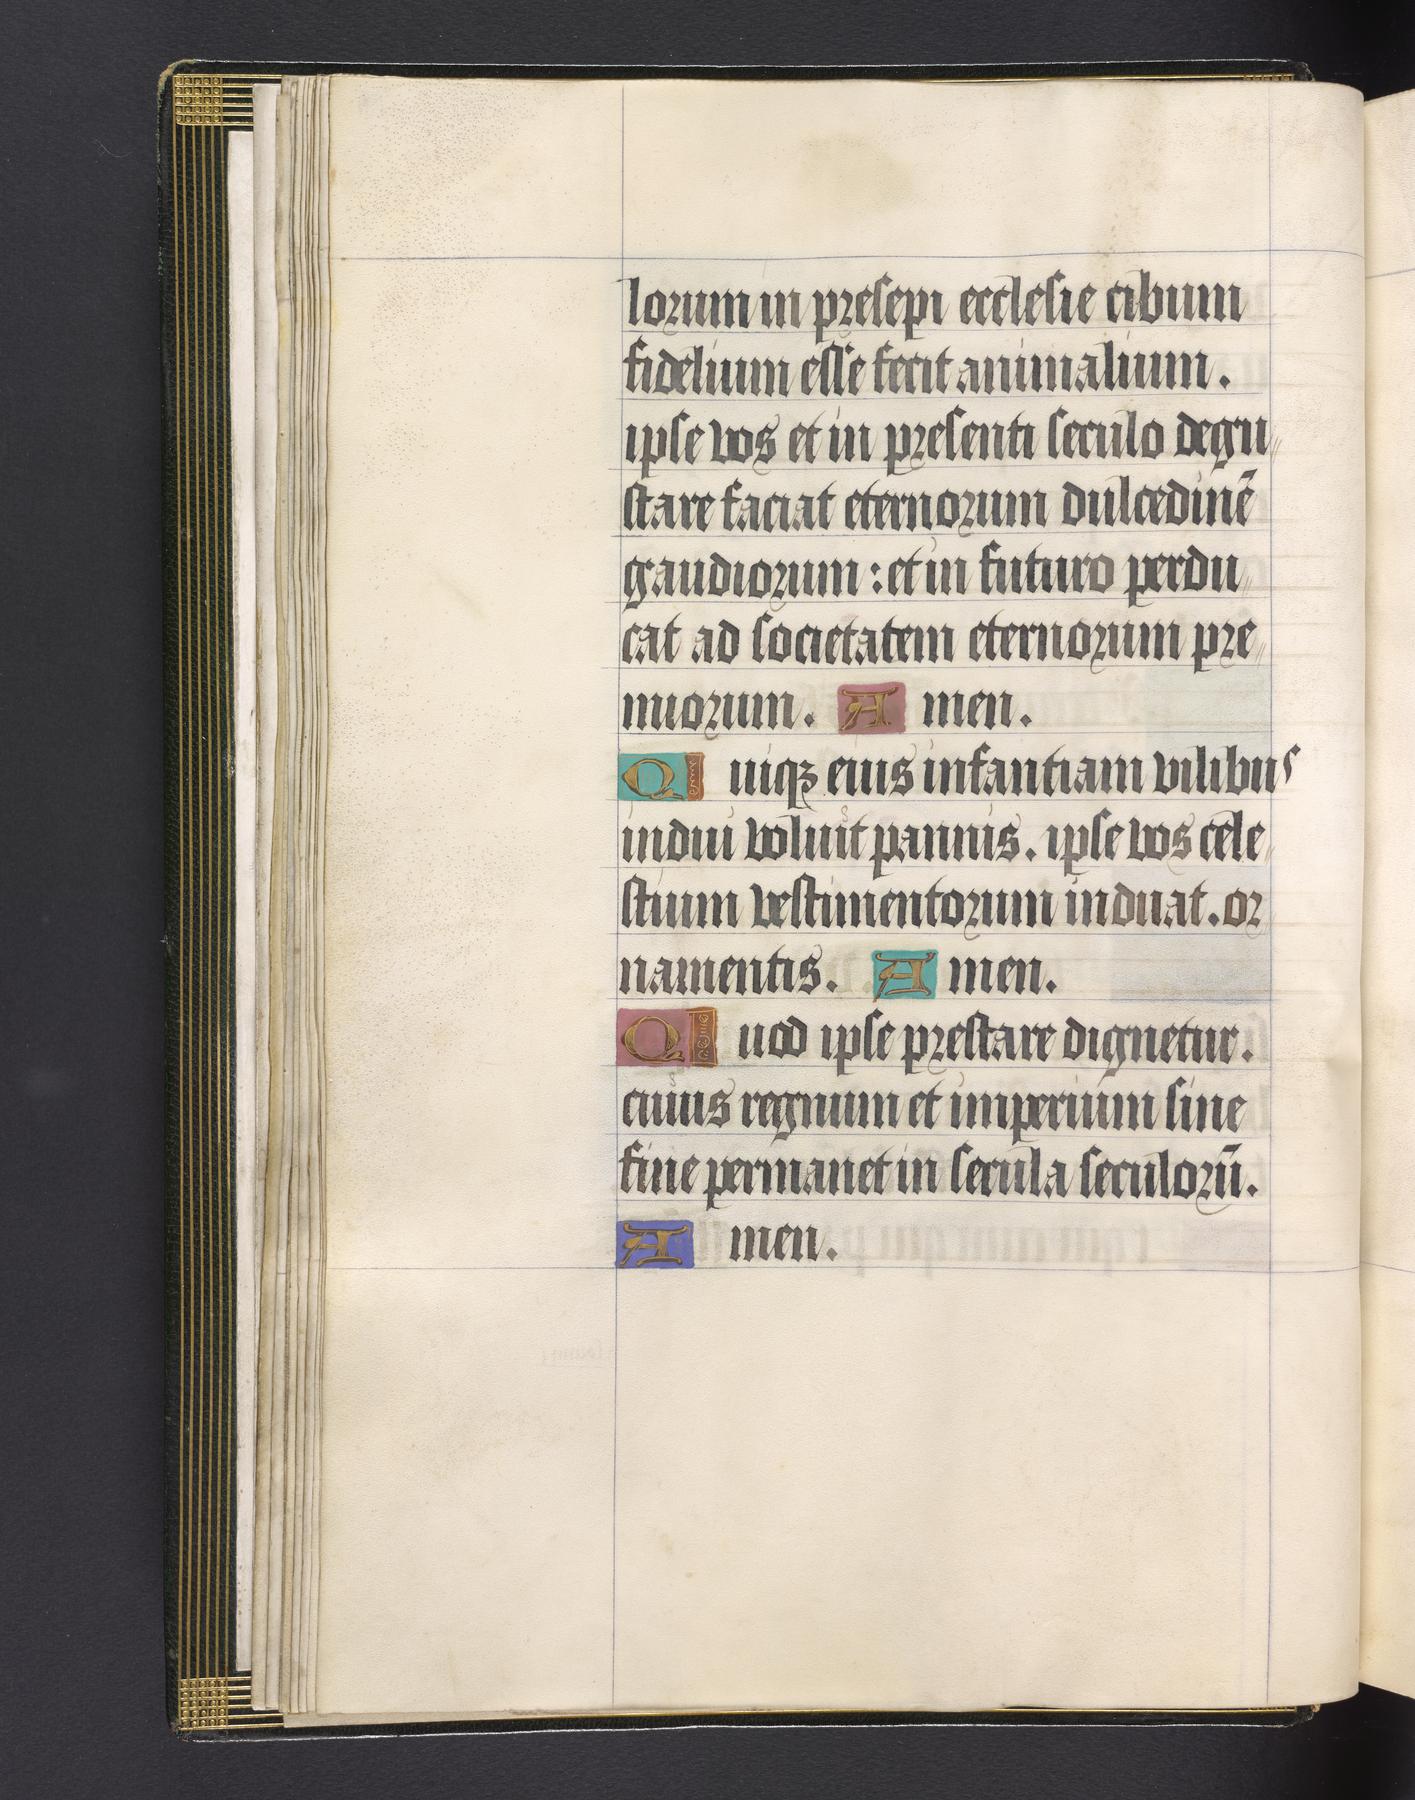 lorum in presepi ecclesie cibum
fidelium esse fecit animalium.
ipse vos et in presenti seculo degu//
stare faciat eternorum dulcedinē
gaudiorum : et in futuro perdu//
cat ad societatem eternorum pre//
miorum. Amen.
Quiqꝫ eius infantiam vilibus
indui voluit pannis. ipse vos cele//
stium vestimentorum induat. or
namentis. Amen.
Quod ipse prestare dignetur.
cuius regnum et imperium sine
fine permanet in secula seculorū.
Amen.